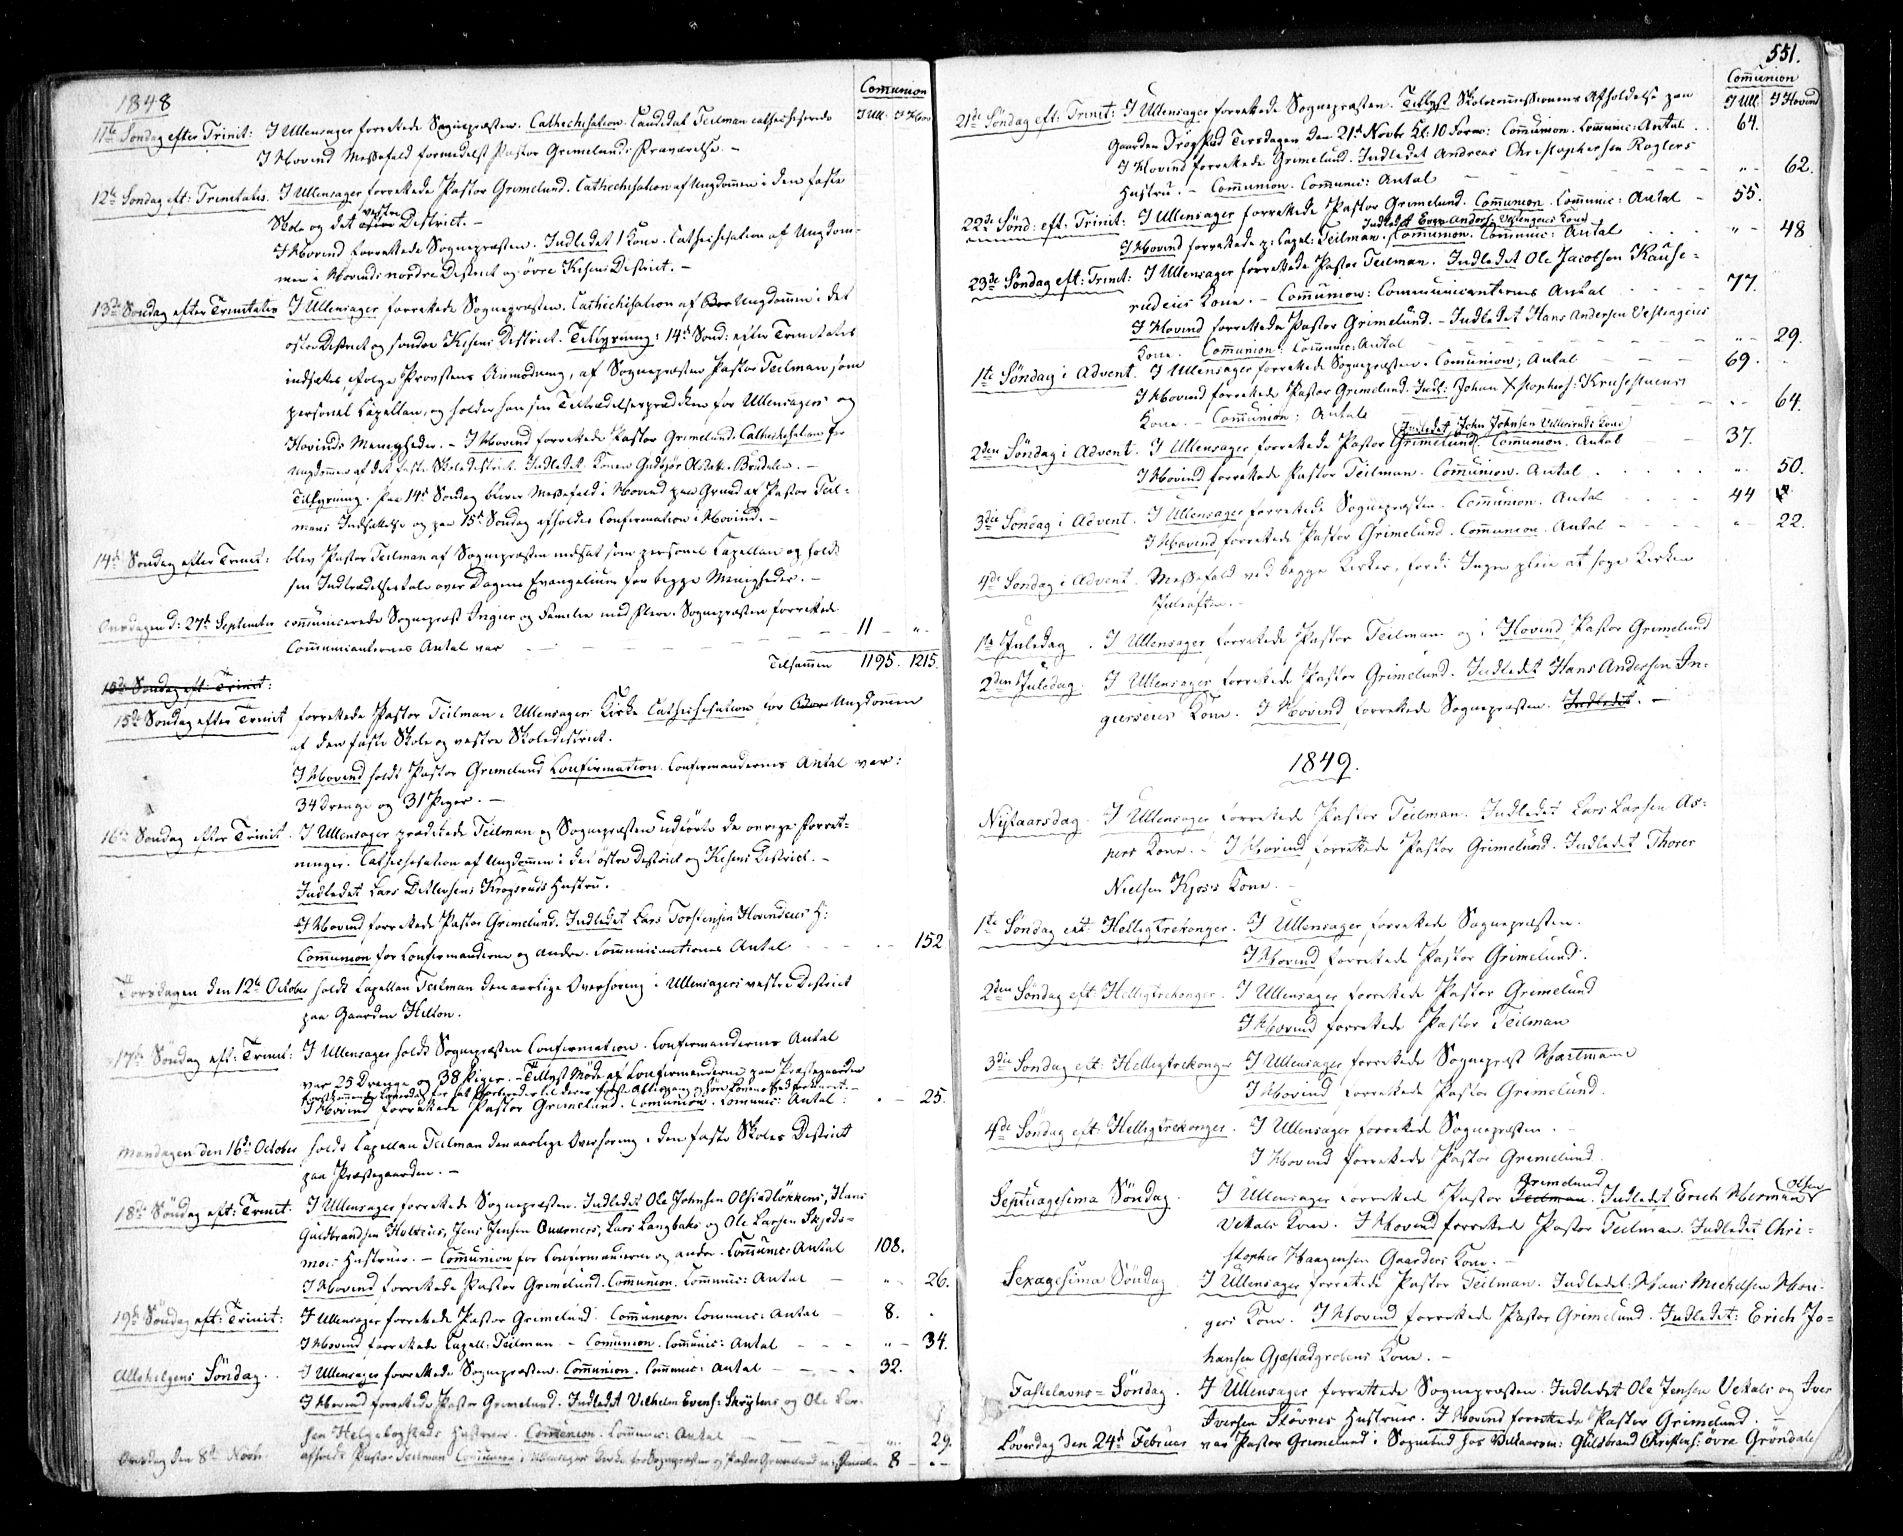 1848
Communion
I Ull: I Hov:
11te Søndag efter Trinit: I Ullensager forrettede Sognepræsten. Cathechisation. Candidat Teilman cathechiserede
I Hovind Messefald formedelst Pastor Grimelunds Fraværelse. –
12te Søndag eft: Trinitatis. I Ullensager forrettede Pastor Grimelund. Cathechisation af Ungdommen i den faste
Skole og det vestre District. –
I Hovind forrettede Sognepræsten. Indledet 1 Kone. Cathechisation af Ungdom-
men i Hovinds nordre District og øvre Kisens District. –
13de Søndag efter Trinitatis I Ullensager forrettede Sognepræsten. Cathechisation af Ungdommen i det
østre District og søndre Kisens District. Tillysning: 14de Sønd: efter Trinitatis
indsættes, ifølge Provstens Anmodning, af Sognepræsten Pastor Teilman som
personel Kapellan, og holder han sin Tiltrædelsesprædiken for Ullensagers og
Hovinds Menigheder. – I Hovind forrettede Pastor Grimelund. Cathechisation for
Ungdommen af det faste Skoledistrict. Indledet Konen Gudbjør Olsdatt: Brudalen. –
Tillysning. Paa 14de Søndag bliver Messefald i Hovind paa Grund af Pastor Teil-
mans Indsættelse og paa 15de Søndag afholdes Confirmation i Hovind. –
14de Søndag efter Trinit: blev Pastor Teilman af Sognepræsten indsat som personel Capellan og holdt
sin Indtrædelsestale over Dagens Evangelium for begge Menigheder. –
Onsdagen d: 27de September communicerede Sognepræst Ingier og Familie med flere. Sognepræsten forrettede
Communicanternes Antal var – 11 – „
Tilsammen 1195. 1215.
15de Søndag eft: Trinit:
15de Søndag efter Trinit forrettede Pastor Teilman i Ullensagers Kirke Cathechisation for Ungdommen
af den faste Skole og vestre Skoledistrict.
I Hovind holdt Pastor Grimelund Confirmation. Confirmandernes Antal var:
34 Drenge og 31 Piger. –
16de Søndag efter Trinit. I Ullensager prædikede Teilman og Sognepræsten udførte de øvrige Forret-
ninger. Cathechisation af Ungdommen i det østre District og Kisens District. –
Indledet Lars Detlevsens Krogsruds Hustru.
I Hovind forrettede Pastor Grimelund. Indledet Lars Torstensen Hovindeies H:
Communion for Confirmanderne og andre. Communicanternes Antal 152
Torsdagen den 12te October holdt Capellan Teilman den aarlige Overhøring i Ullensagers vestre District
paa Gaarden Hilton.
17de Søndag eft: Trinit: I Ullensager holdt Sognepræsten Confirmation. Confirmandernes Antal
var 25 Drenge og 38 Piger. – Tillyst Møde af Confirmanderne paa Præstegaarden
I Hovind forrettede Pastor Grimelund. Communion. Communic: Antal: 25.
Mandagen den 16de October holdt Capellan Teilman den aarlige Overhøring i den faste Skoles District
paa Præstegaarden. –
18de Søndag eft: Trinit. I Ullensager forrettede Sognepræsten. Indledet Ole Johnsen Olstadløkkens, Hans
Guldbrandsen Holseies, Jens Jensen Quærners, Lars Langbaks og Ole Larsen Skjeds-
moe: Hustruer. – Communion for Confirmanderne og andre. Communic: Antal 108.
I Hovind forrettede Pastor Grimelund. Communion. Communic: Antal – „ 26.
19de Søndag eft: Trinit: I Ullensager forrettede Pastor Grimelund. Communion. Communic: Antal – 8.
I Hovind forrettede Capell: Teilman. – Communion. Communic: Antal – „ – 34.
Allehelgens Søndag. I Ullensager forrettede Sognepræsten. Communion. Communic: Antal – 32.
I Hovind forrettede Pastor Grimelund. Indledet Vilhelm Evens: Skrylens og Ole Lar-
sen Helgebostads Hustruer. Communion. Communic: Antal – 29.
Onsdag den 8de Novbr. afholdt Pastor Teilman Communion i Ullensagers Kirke for Sognepræsten og Pastor Grimelund m: Familie 8 – „ –
551.
Communion
I Ull I Hovind
21de Søndag eft: Trinit: I Ullensager forrettede Sognepræsten. Tillyst Skolecommissionens Afholdelse paa
Gaarden Drøgstad Tirsdagen den 21de Novbr Kl: 10 Form: Communion. Communic: Antal. 64.
I Hovind forrettede Grimelund. Indledet Andreas Christophersen Roglers
Hustru. – Communion. Communic: Antal – „ 62.
22de Sønd: eft: Trinit: I Ullensager forrettede Pastor Grimelund. Communion. Communic: Antal – 55.
Indledet Even Anders: Vestengeies Kone
I Hovind forrettede p: Capel: Teilman. Communion. Communic: Antal „ – 48
23de Søndag eft: Trinit: I Ullensager forrettede Pastor Teilman. Indledet Ole Jacobsen Kause-
rudeies Kone. – Communion: Communicanternes Antal 77.
I Hovind forrettede Pastor Grimelund. – Indledet Hans Andersen Vestengeies
Kone. Communion: Communic: Antal – 29.
1te Søndag i Advent. I Ullensager forrettede Sognepræsten. Communion; Antal – 69.
I Hovind forrettede Pastor Grimelund. Indl: Johan Xstophers: Krusestuens
Kone. – Communion: Antal – 64.
Indledet John Johnsen Villeruds Kone
2den Søndag i Advent. I Ullensager forrettede Pastor Grimelund. Communion. Antal – 37.
I Hovind forrettede Pastor Teilman. Communion. Antal „ 50.
3die Søndag i Advent. I Ullensager forrettede Sognepræsten. Communion. Antal 44
I Hovind forrettede Pastor Grimelund. Communion. Antal – „ – 22.
4de Søndag i Advent. Messefald ved begge Kirker, fordi Ingen pleie at søge Kirken
Juleaften. –
1te Juledag. I Ullensager forrettede Pastor Teilman og i Hovind Pastor Grimelund
2den Juledag. I Ullensager forrettede Pastor Grimelund. Indledet Hans Andersen In-
gierseies Kone. I Hovind forrettede Sognepræsten. Indledet. –
1849.
Nytaarsdag. I Ullensager forrettede Pastor Teilman. Indledet Lars Larsen As-
pers Kone. – I Hovind forrettede Pastor Grimelund. Indledet Thorer
Nielsen Kjos's Kone. –
1te Søndag eft: Helligtrekonger. I Ullensager forrettede Sognepræsten.
I Hovind forrettede Pastor Grimelund.
2den Søndag eft: Helligtrekonger. I Ullensager forrettede Pastor Grimelund
I Hovind forrettede Pastor Teilman
3die Søndag eft: Helligtrekonger I Ullensager forrettede Sognepræst Hartmann
I Hovind forrettede Pastor Grimelund.
4de Søndag eft: Helligtrekonger. I Ullensager forrettede Sognepræsten. –
I Hovind forrettede Pastor Grimelund.
Septuagesima Søndag. I Ullensager forrettede Pastor Teilman Grimelund. Indledet Erich Herman Olsen
Vekals Kone. I Hovind forrettede Pastor Teilman. Indledet Chri-
stopher Haagensen Gaarders Kone. –
Sexagesima Søndag I Ullensager forrettede Pastor Teilman. Indledet: Hans Michelsen Hau-
gers Kone. I Hovind forrettede Pastor Grimelund. Indledet: Erich Jo-
hansen Gjestadgrobens Kone. –
Fastelavns-Søndag. I Ullensager forrettede Sognepræsten. Indledet Ole Jensen Vekals og Iver
Iversen Kløvres Hustruer. I Hovind forrettede Pastor Grimelund. –
Løverdag den 24de Februar var Pastor Grimelund i Sognebud hos Vilkaarsm: Guldbrand Christens: øvre Grøndale